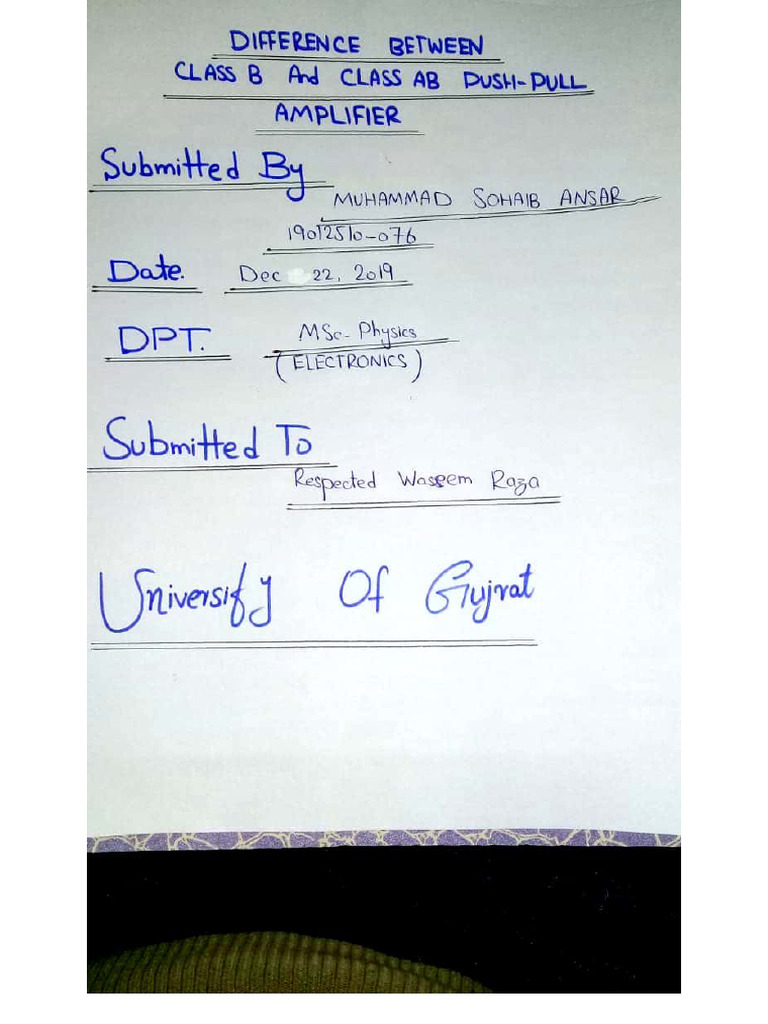 DIFFERENCE BETWEEN
CLASS B And CLASS AB PUSH-PULL
AMPLIFIER
Submitted By
MUHAMMAD SOHAIB ANSAR
19012510-076
Date. Dec 22, 2019
DPT. MSc-Physics
(ELECTRONICS)
Submitted To
Respected Waseem Raza
University Of Gujrat